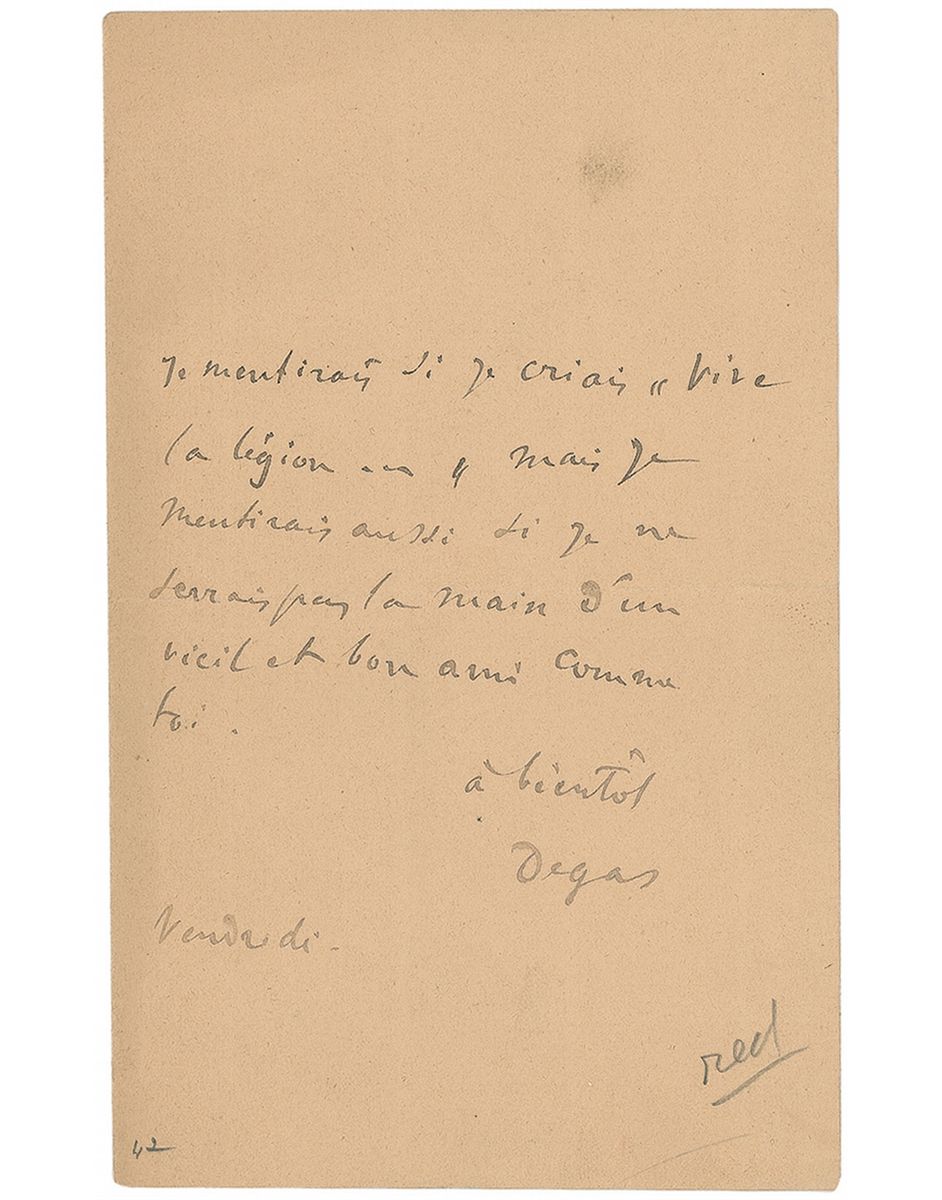 Je mentirais si je criais „ Vive
la légion ... „ mais je
mentirais aussi si je ne
serrais pas la main d'un
vieil et bon ami comme
toi.
à bientôt
Degas
Vendredi -
red
42